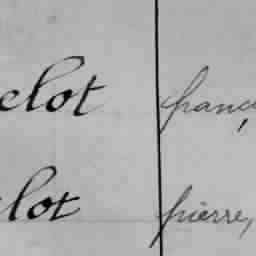 elot franç
lot pierre,